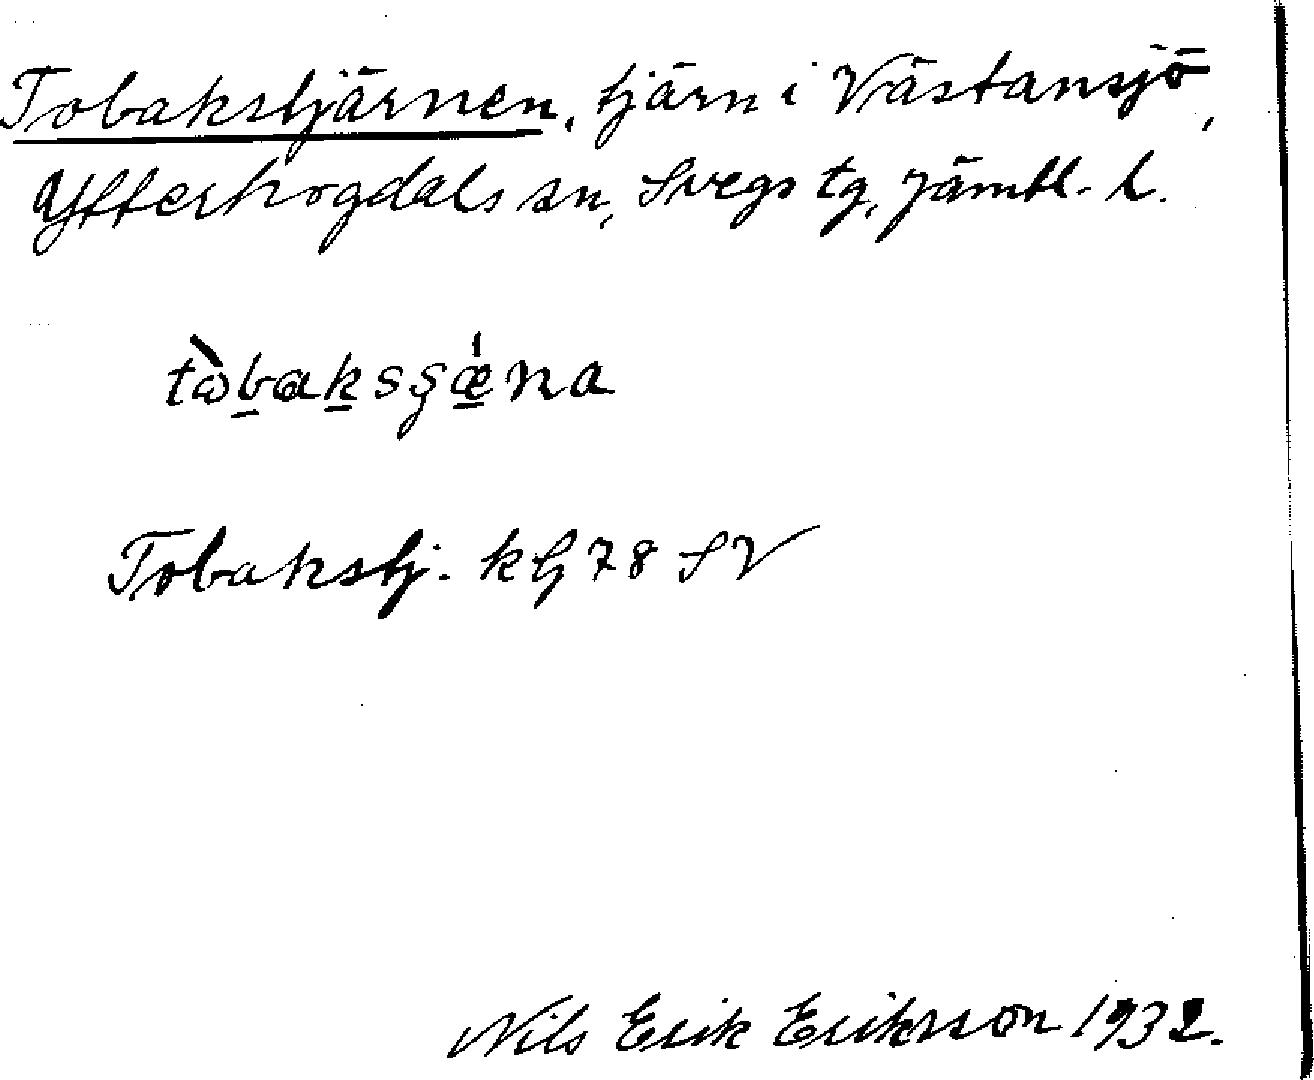 Tobakstjärnen, tjärn i Västansjö,
Ytterhogdals sn, Svegs tg, Jämtl. l.
tòbaksʂǽna
Tobakstj. kbl 78 SV
Nils Erik Eriksson 1932.